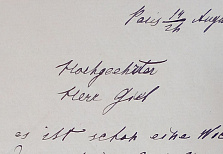 Paris 14/26 Aug
Hochgeehrter
Herr Giel
es ist schon eine Wo